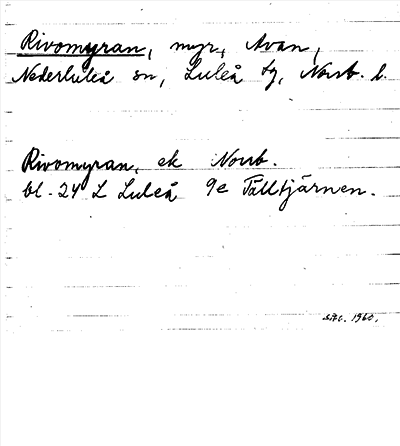 Rivomyran, myr, Avan,
Nederluleå sn, Luleå tg, Norrb. l.
Rivomyran, ek Norrb.
bl. 24 L Luleå 9e Tälltjärnen.
1960.